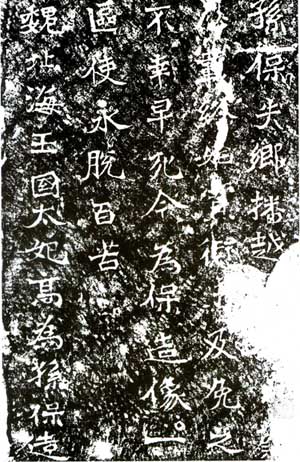 孫保失鄉播越
軍終始寧衛及免之
不幸早死今為保造像一
區使永脫百苦
魏北海王國太妃高為孫保造